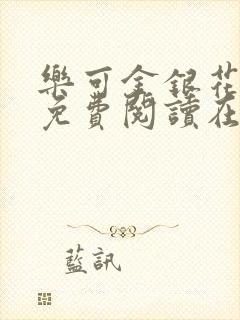 樂可金銀花
免費閱讀在
藍訊